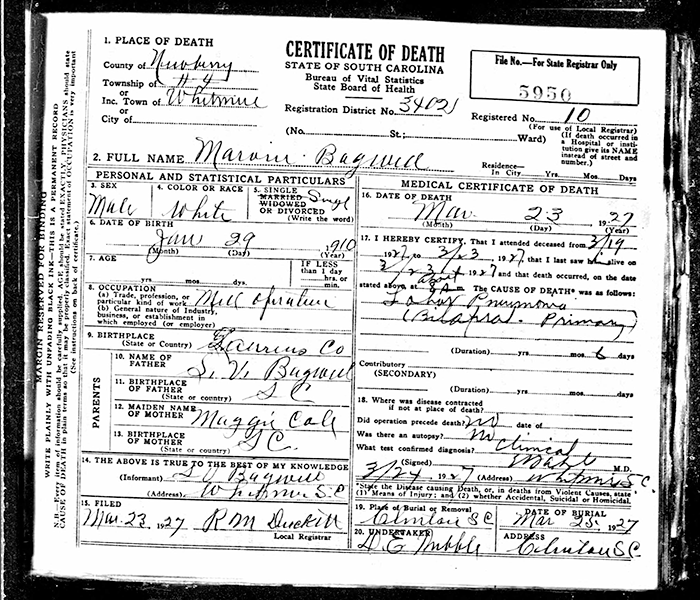 MARGIN RESERVED FOR BINDING
WRITE PLAINLY WITH UNFADING BLACK INK—THIS IS A PERMANENT RECORD
N.B.—Every item of information should be carefully supplied. AGE should be stated EXACTLY. PHYSICIANS should state
CAUSE OF DEATH in plain terms so that it may be properly classified. Exact statement of OCCUPATION is very important
(See instructions on back of certificate.)
1. PLACE OF DEATH
County of Newberry
Township of #4
or
Inc. Town of Whitmire
or
City of
CERTIFICATE OF DEATH
STATE OF SOUTH CAROLINA
Bureau of Vital Statistics
State Board of Health
Registration District No. 3402
File No.—For State Registrar Only
5950
Registered No. 10
(For use of Local Registrar)
(No. St.; Ward)
(If death occurred in
a Hospital or insti-
tution give its NAME
instead of street and
number.)
2. FULL NAME Marvin Bagwell
Residence—
In City Yrs. Mos. Days
PERSONAL AND STATISTICAL PARTICULARS
3. SEX
Male
4. COLOR OR RACE
White
5. SINGLE
MARRIED
WIDOWED
OR DIVORCED
(Write the word)
Singl
6. DATE OF BIRTH
Jan 29 1910
(Month) (Day) (Year)
7. AGE
yrs. mos. days
IF LESS
than 1 day
hrs. or
min.
8. OCCUPATION
(a) Trade, profession, or
particular kind of work Mill operative
(b) General nature of Industry,
business, or establishment in
which employed (or employer)
9. BIRTHPLACE
(State or Country) Laurens Co
PARENTS
10. NAME OF
FATHER Bagwell
11. BIRTHPLACE
OF FATHER S C
(State or country)
12. MAIDEN NAME
OF MOTHER Maggie Cole
13. BIRTHPLACE
OF MOTHER S C.
(State or country)
14. THE ABOVE IS TRUE TO THE BEST OF MY KNOWLEDGE
(Informant) Bagwell
(Address) Whitmire S.C
15. FILED
Mar. 23, 1927 R M Duckett
Local Registrar
MEDICAL CERTIFICATE OF DEATH
16. DATE OF DEATH
Mar 23 1927
(Month) (Day) (Year)
17. I HEREBY CERTIFY, That I attended deceased from 3/19
1927 to 3/23, 1927 that I last saw h alive on
3/23 1927 and that death occurred, on the date
stated above at The CAUSE OF DEATH* was as follows:
Lobar Pneumonia
(Bilateral - Primary)
(Duration) yrs. mos. 6 days
Contributory
(SECONDARY)
(Duration) yrs. mos. days
18. Where was disease contracted
if not at place of death?
Did operation precede death? no date of
Was there an autopsy? no
What test confirmed diagnosis? Clinical
(Signed) M.D.
3/24 1927 (Address) Whitmire S.C.
*State the Disease causing Death, or, in deaths from Violent Causes, state
(1) Means of Injury; and (2) whether Accidental, Suicidal or Homicidal.
19. Place of Burial or Removal
Clinton S C
DATE OF BURIAL
Mar 25, 1927
20. UNDERTAKER
ADDRESS
Clinton S C.